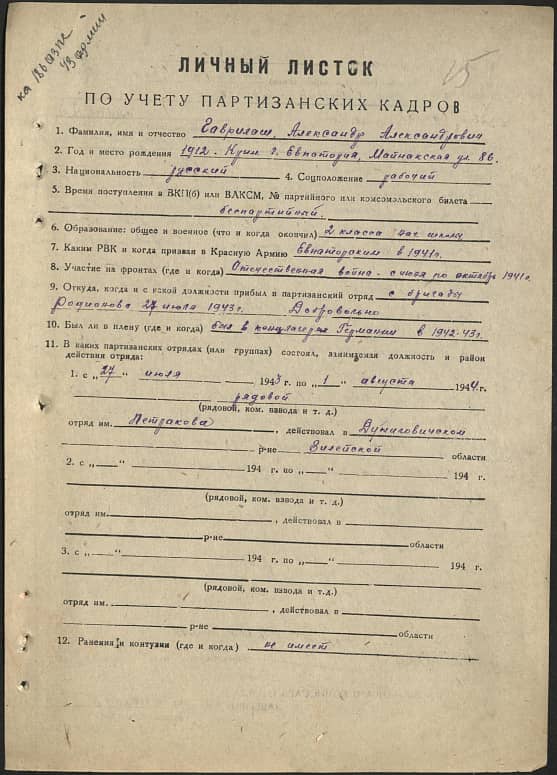 на 186 АЗПС
43 армии
15
ЛИЧНЫЙ ЛИСТОК
ПО УЧЕТУ ПАРТИЗАНСКИХ КАДРОВ
1. Фамилия, имя и отчество Гаврилаш, Александр Александрович
2. Год и место рождения 1912. Крим г. Евпатория, Майнакская ул. 86.
3. Национальность русский 4. Соцположение рабочий
5. Время поступления в ВКП(б) или ВЛКСМ, № партийного или комсомольского билета
беспартийный.
6. Образование: общее и военное (что и когда окончил) 2 класса нач школи
7. Каким РВК и когда призван в Красную Армию Евпаторским в 1941г.
8. Участие на фронтах (где и когда) Отечественная война - с июля по октябрь 1941г.
9. Откуда, когда и с какой должности прибыл в партизанский отряд с бригады
Родионова 27 июля 1943г. Добровольно
10. Был ли в плену (где и когда) был в концлагерях Германии в 1942-43г.
11. В каких партизанских отрядах (или группах) состоял, занимаемая должность и район
действия отряда:
1. с „27“ июля 1943 г. по „1“ августа 1944 г.
рядовой
(рядовой, ком. взвода и т. д.)
отряд им. Петракова, действовал в Дуниловичском
р-не Вилейской области
2. с „ “ 194 г. по „ “ 194 г.
(рядовой, ком. взвода и т. д.)
отряд им. , действовал в
р-не области
3. с „ “ 194 г. по „ “ 194 г.
(рядовой, ком. взвода и т.д.)
отряд им. , действовал в
р-не области
12. Ранения и контузии (где и когда) не имеет